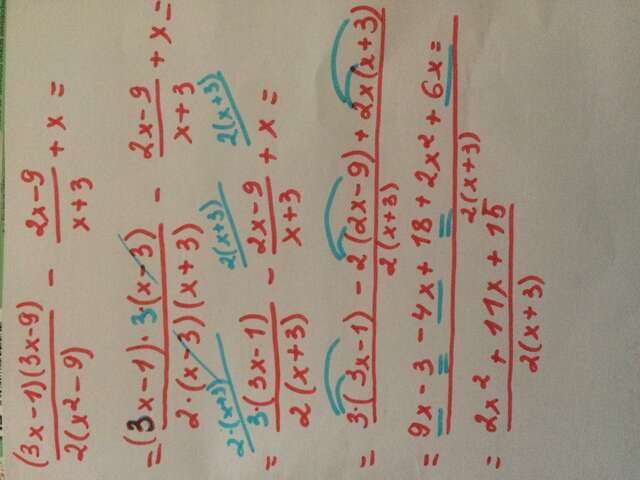 (3x-1)(3x-9)/2(x²-9) - 2x-9/x+3 + x =
= (3x-1)·3·(x-3)/2·(x-3)(x+3) - 2x-9/x+3 + x =
2·(x+3) 2(x+3) 2(x+3)
= 3·(3x-1)/2(x+3) - 2x-9/x+3 + x =
= 3·(3x-1) - 2(2x-9) + 2x(x+3)/2(x+3)
= 9x-3-4x+18+2x²+6x/2(x+3) =
= 2x²+11x+15/2(x+3)